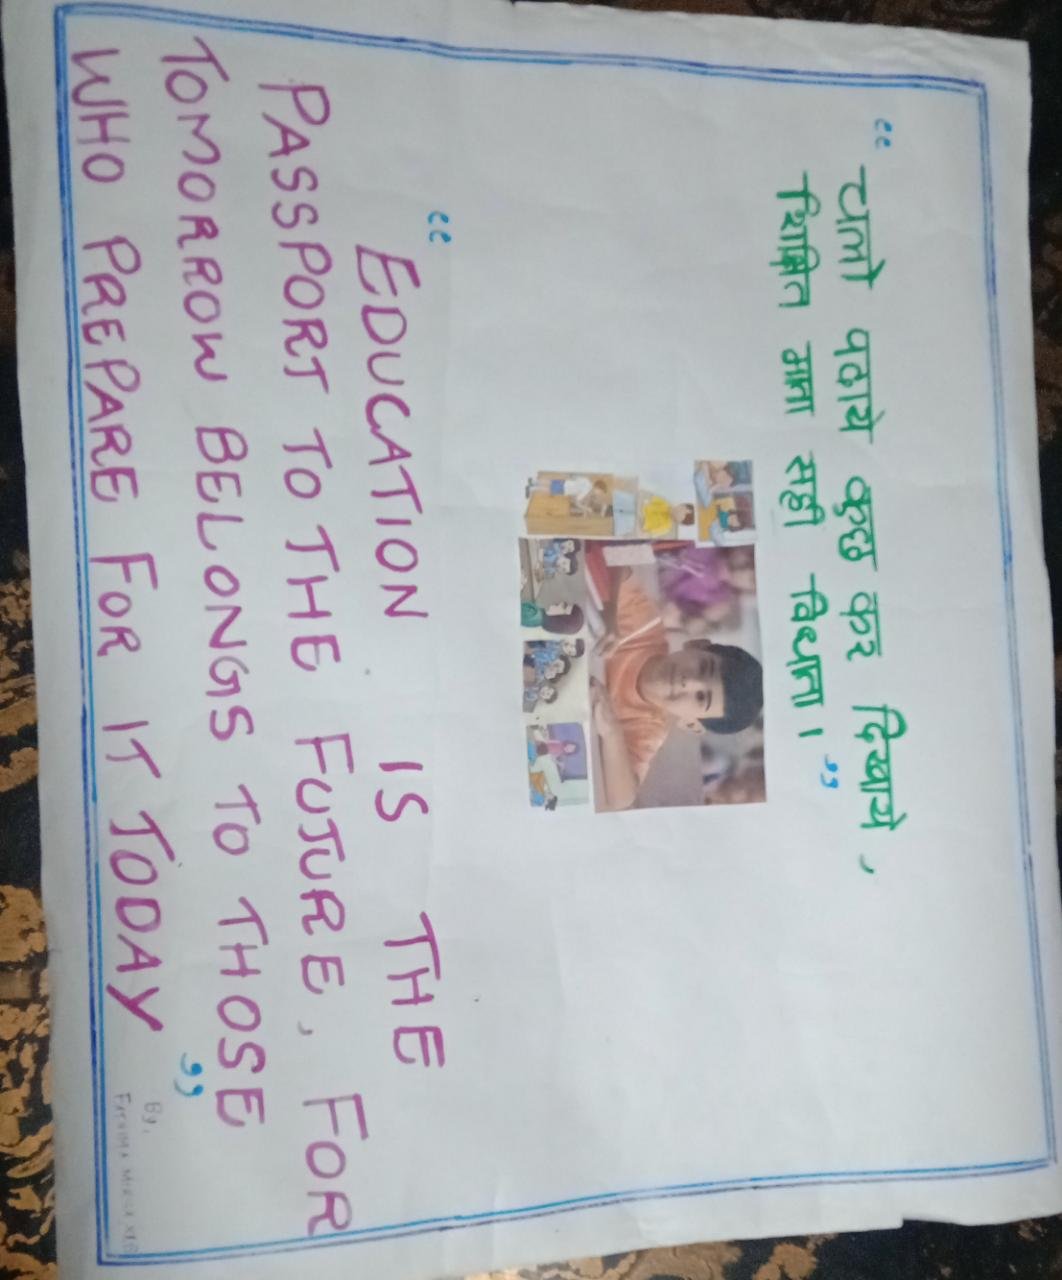 “ चलो पढाये कुछ कर दिखाये ,
शिक्षित माता सही विधाता । ”
“ EDUCATION IS THE
PASSPORT TO THE FUTURE, FOR
TOMORROW BELONGS TO THOSE
WHO PREPARE FOR IT TODAY ”
By,
FATHIMA